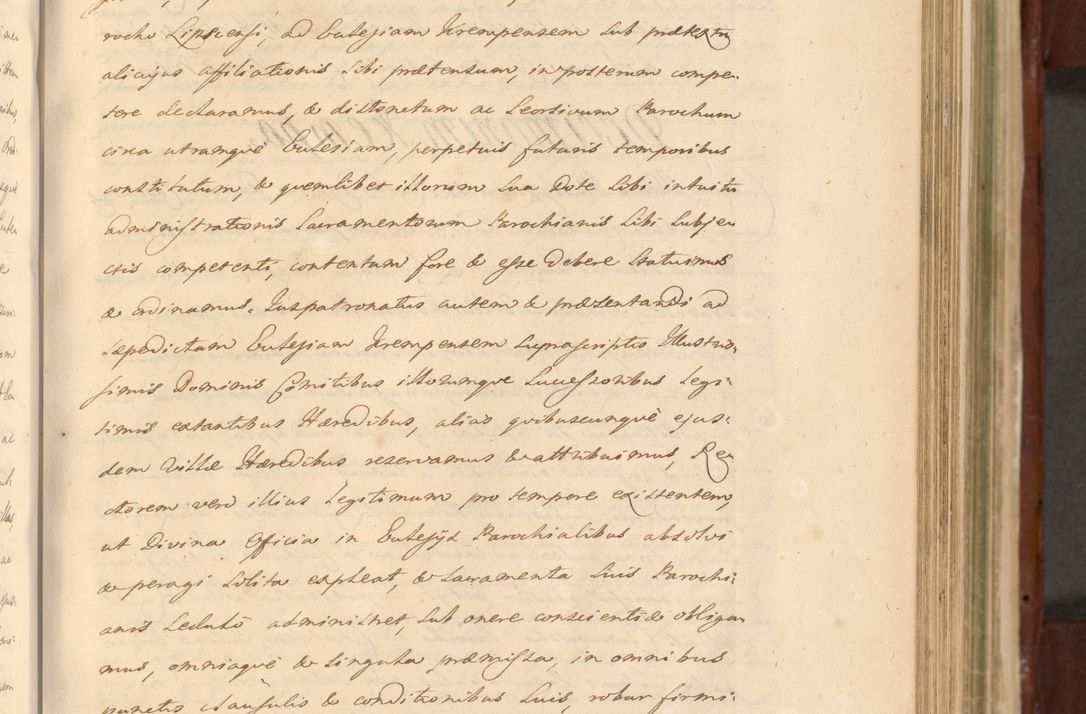 rocho Lipscensi, ad Eulesiam Krempensem sub prætextu
alicujus affiliationis sibi prætensum, in posterum compe-
tere declaramus, & distinctum ac seorsivum Parochum
circa utramque Eulesiam, perpetuis futuris temporibus
constitutum, & quemlibet illorum sua Dote sibi intuitu
administrationis Sacramentorum Parochianis sibi subje-
ctis competenti, contentum fore & esse debere statuimus
& ordinamus. Juspatronatus autem & præzentandi ad
sæpedictam Eulesiam Krempensem suprascriptis Illustris-
simis Dominis Comitibus illorumque Successoribus legi-
timis extantibus Hæredibus, alias quibuscunquè ejus-
dem Villæ Hæredibus reservamus & attribuimus, Re-
ctorem verò illius Legitimum pro tempore existentem,
ut Divina Officia in Eulesijs Parochialibus absolvi
& peragi solita expleat, & Sacramenta suis Parochi-
anis sedulò administret, sub onere conscientiæ obliga-
mus, omniaquè & singula præmissa, in omnibus
punctis clausulis & conditionibus suis, robur firmi-